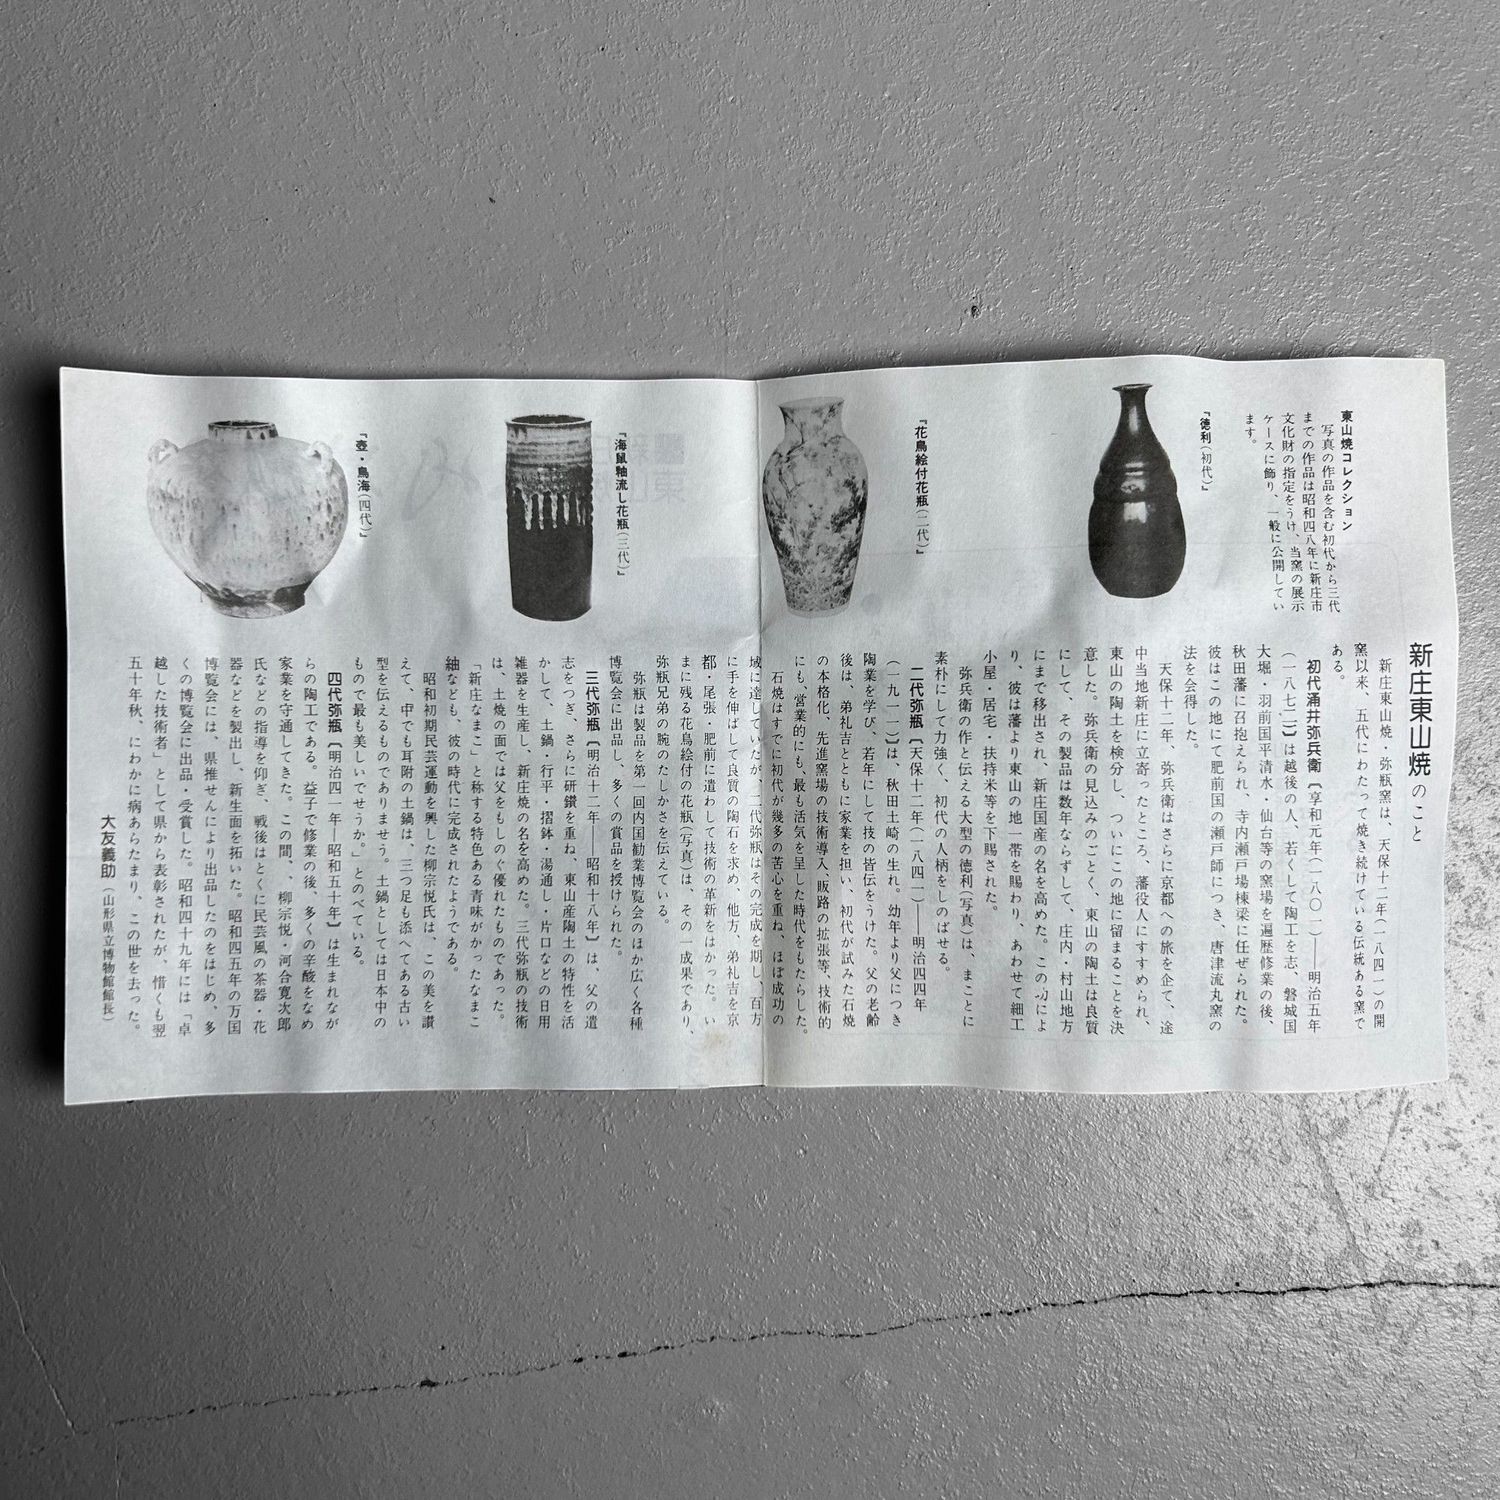 新庄東山焼のこと
新庄東山焼・弥瓶窯は、天保十二年(一八四一)の開
窯以来、五代にわたって焼き続けている伝統ある窯で
ある。
初代涌井弥兵衛〔享和元年(一八〇一)——明治五年
(一八七二)〕は越後の人、若くして陶工を志、磐城国
大堀・羽前国平清水・仙台等の窯場を遍歴修業の後、
秋田藩に召抱えられ、寺内瀬戸場棟梁に任ぜられた。
彼はこの地にて肥前国の瀬戸師につき、唐津流丸窯の
法を会得した。
天保十二年、弥兵衛はさらに京都への旅を企て、途
中当地新庄に立寄ったところ、藩役人にすすめられ、
東山の陶土を検分し、ついにこの地に留まることを決
意した。弥兵衛の見込みのごとく、東山の陶土は良質
にして、その製品は数年ならずして、庄内・村山地方
にまで移出され、新庄国産の名を高めた。この功によ
り、彼は藩より東山の地一帯を賜わり、あわせて細工
小屋・居宅・扶持米等を下賜された。
弥兵衛の作と伝える大型の徳利(写真)は、まことに
素朴にして力強く、初代の人柄をしのばせる。
二代弥瓶〔天保十二年(一八四一)——明治四四年
(一九一一)〕は、秋田土崎の生れ。幼年より父につき
陶業を学び、若年にして技の皆伝をうけた。父の老齢
後は、弟礼吉とともに家業を担い、初代が試みた石焼
の本格化、先進窯場の技術導入、販路の拡張等、技術的
にも、営業的にも、最も活気を呈した時代をもたらした。
石焼はすでに初代が幾多の苦心を重ね、ほぼ成功の
域に達していたが、二代弥瓶はその完成を期し、百方
に手を伸ばして良質の陶石を求め、他方、弟礼吉を京
都・尾張・肥前に遣わして技術の革新をはかった。い
まに残る花鳥絵付の花瓶(写真)は、その一成果であり、
弥瓶兄弟の腕のたしかさを伝えている。
弥瓶は製品を第一回内国勧業博覧会のほか広く各種
博覧会に出品し、多くの賞品を授けられた。
三代弥瓶〔明治十二年——昭和十八年〕は、父の遺
志をつぎ、さらに研鑚を重ね、東山産陶土の特性を活
かして、土鍋・行平・摺鉢・湯通し・片口などの日用
雑器を生産し、新庄焼の名を高めた。三代弥瓶の技術
は、土焼の面では父をもしのぐ優れたものであった。
「新庄なまこ」と称する特色ある青味がかったなまこ
釉なども、彼の時代に完成されたようである。
昭和初期民芸運動を興した柳宗悦氏は、この美を讃
えて、「中でも耳附の土鍋は、三つ足も添へてある古い
型を伝えるものでありませう。土鍋としては日本中の
もので最も美しいでせうか。」とのべている。
四代弥瓶〔明治四一年—昭和五十年〕は生まれなが
らの陶工である。益子で修業の後、多くの辛酸をなめ
家業を守通してきた。この間、、柳宗悦・河合寛次郎
氏などの指導を仰ぎ、戦後はとくに民芸風の茶器・花
器などを製出し、新生面を拓いた。昭和四五年の万国
博覧会には、県推せんにより出品したのをはじめ、多
くの博覧会に出品・受賞した。昭和四十九年には「卓
越した技術者」として県から表彰されたが、惜くも翌
五十年秋、にわかに病あらたまり、この世を去った。
大友義助(山形県立博物館館長)
東山焼コレクション
写真の作品を含む初代から三代
までの作品は昭和四八年に新庄市
文化財の指定をうけ、当窯の展示
ケースに飾り、一般に公開してい
ます。
『徳利(初代)』
『花鳥絵付花瓶(二代)』
『海鼠釉流し花瓶(三代)』
『壺・鳥海(四代)』